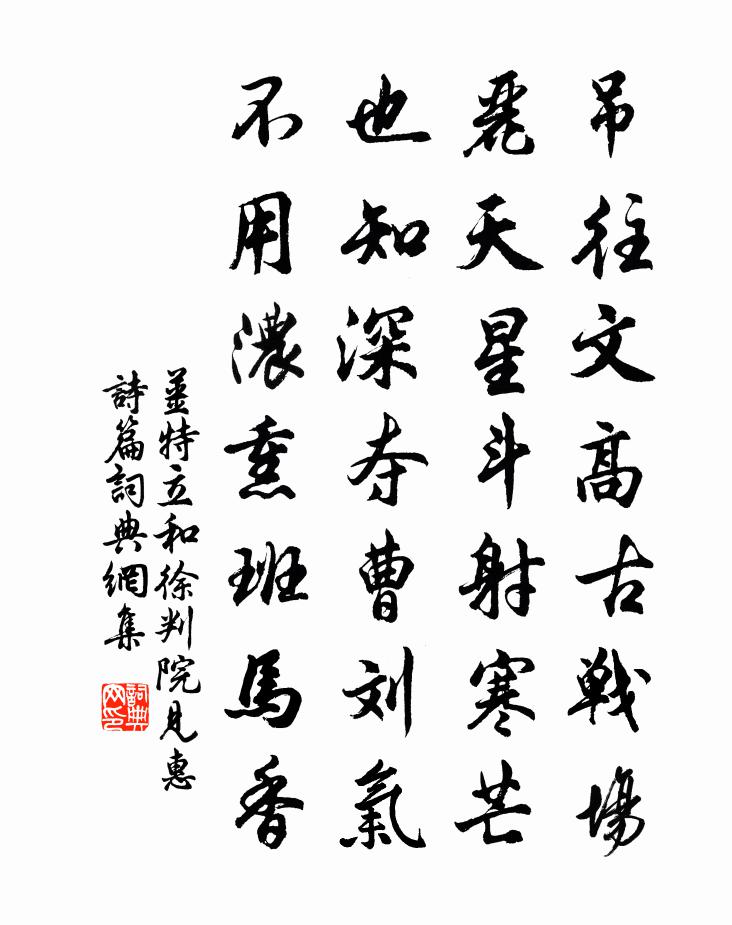 吊往文高古戦場
麗天星斗射寒芒
也知深夺曹刘氣
不用濃熏班馬香
姜特立和徐判院見惠
詩篇詞典網集
詞典
网印